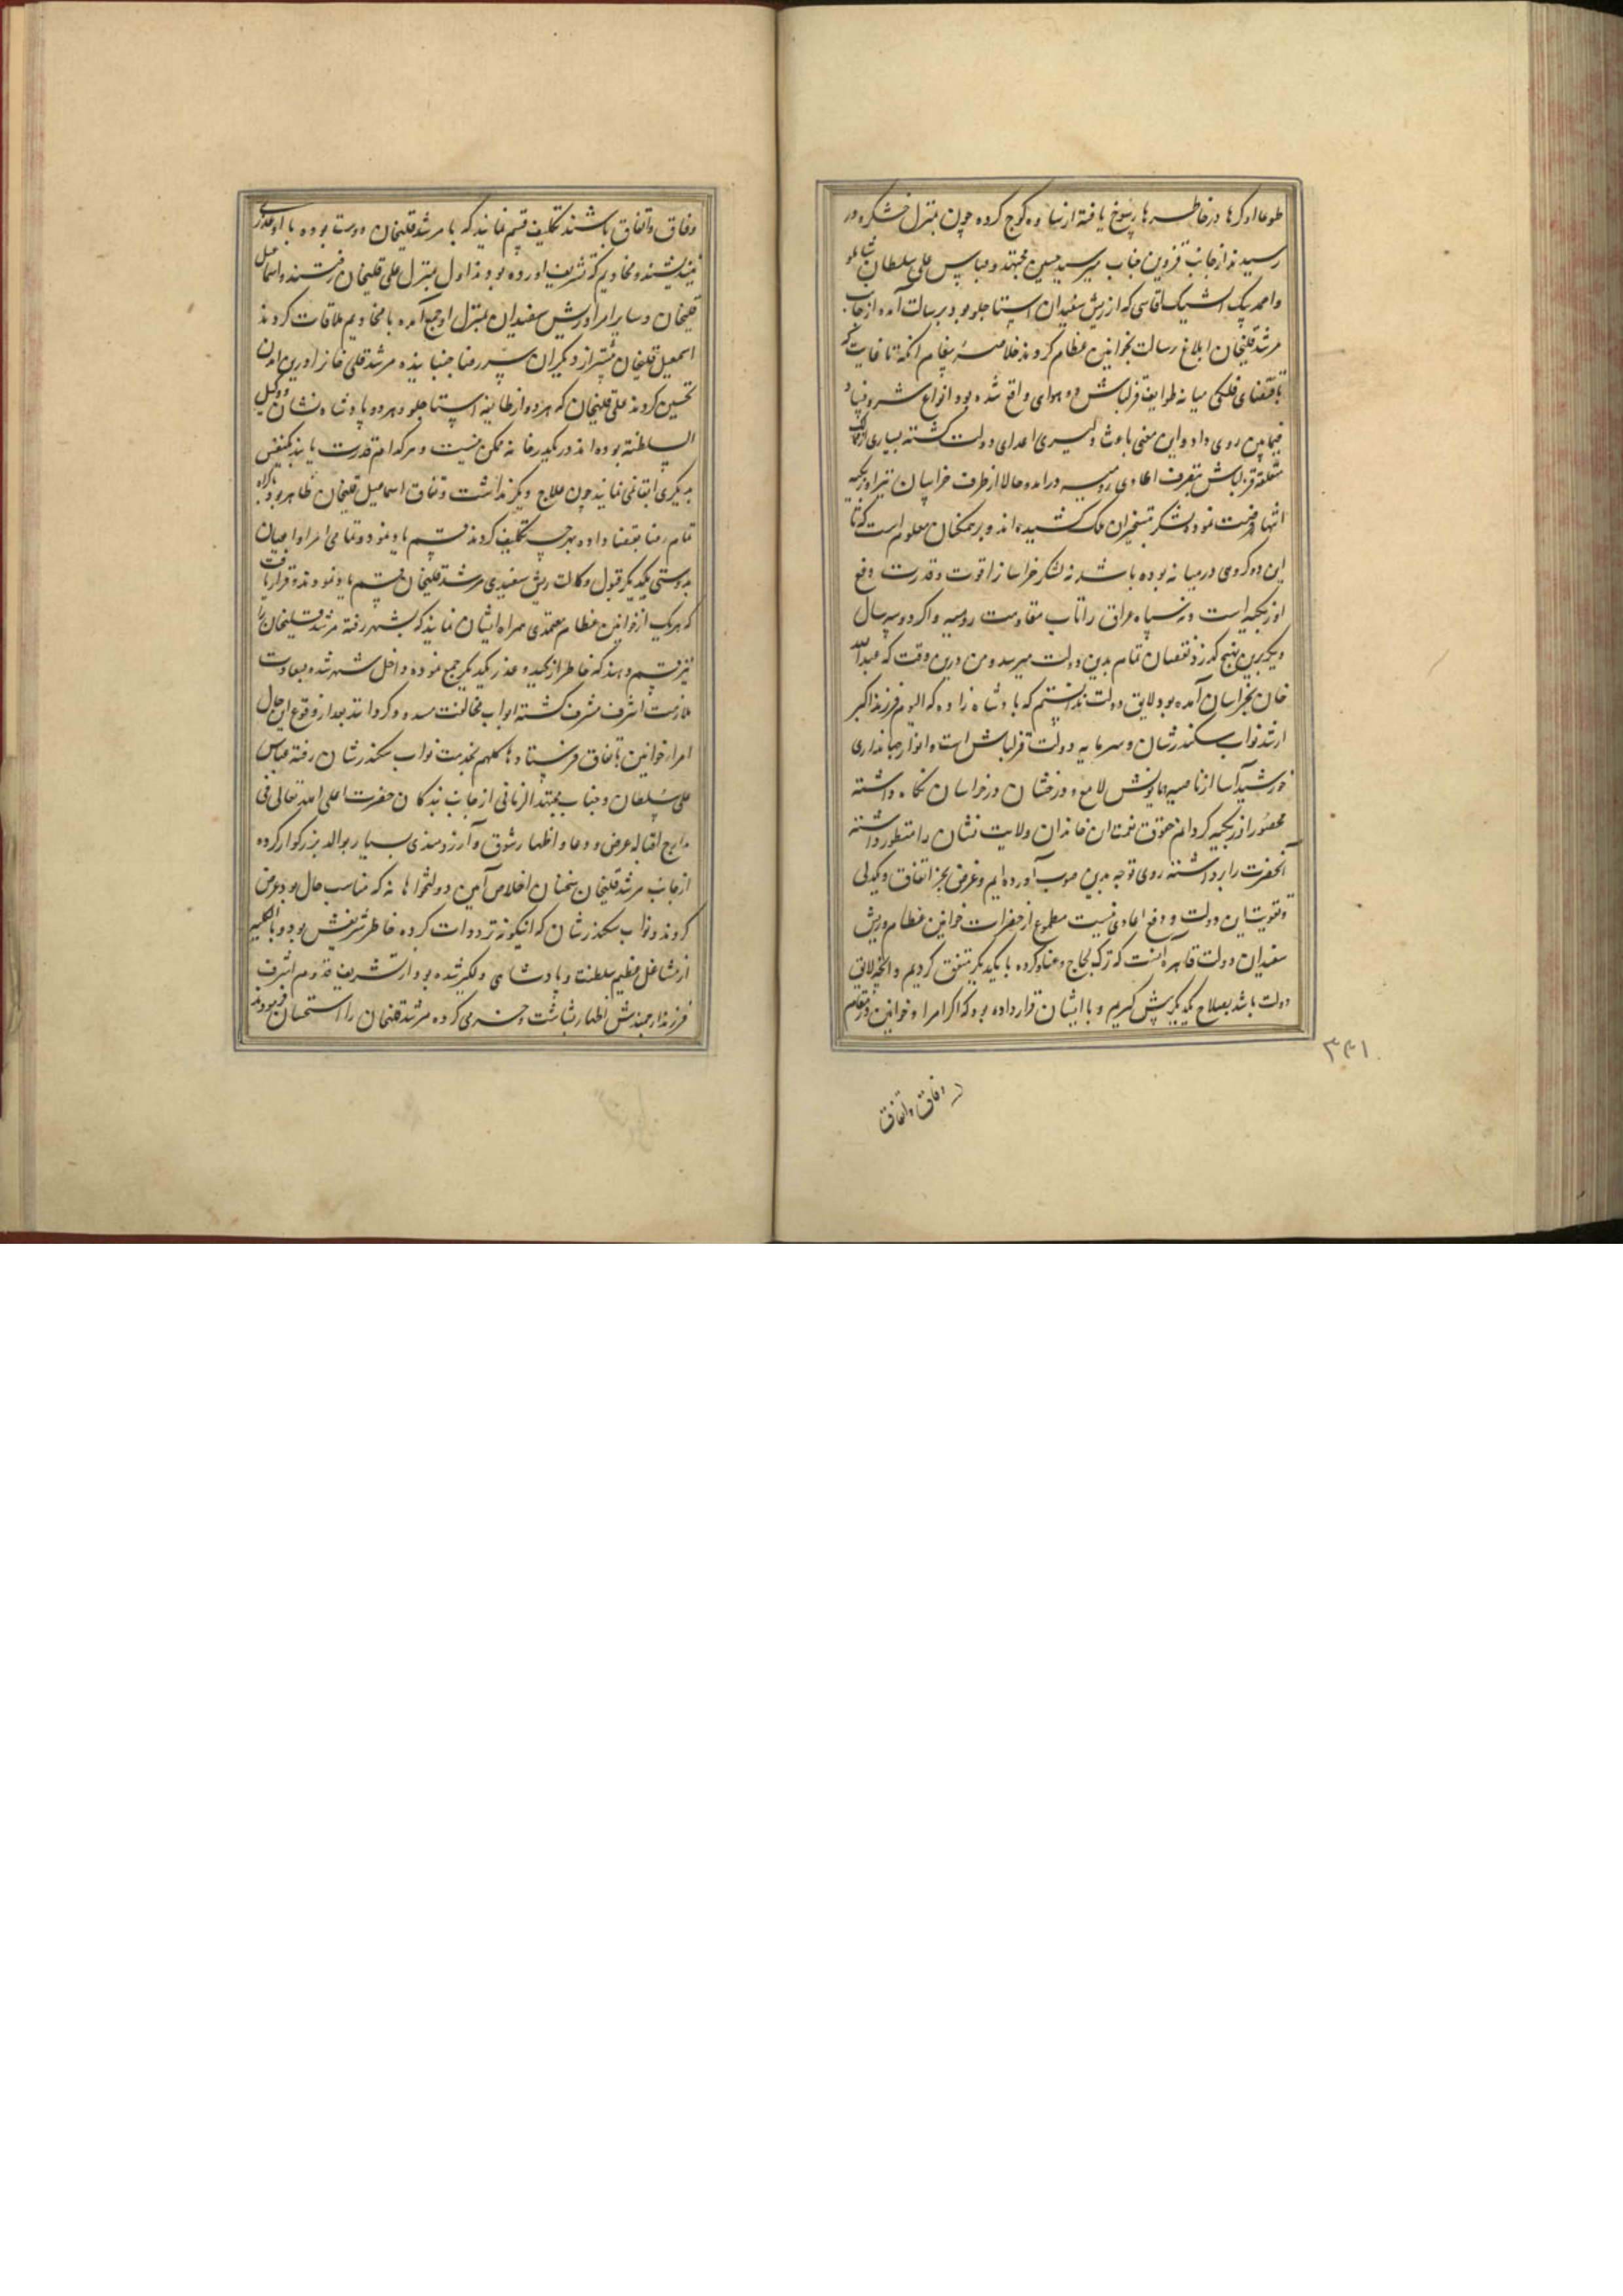 طوعا او کرها در خاطرها رسوخ یافته از ساوه کوچ کرده چون بمنزل خشکرود
رسیدند از جانب قزوین جناب میر سید حسین مجتهد و عباس علی سلطان شاملو
و احمد بیک ایشیک اقاسی که از ریش سفیدان استاجلو بود برسالت آمده از جانب
مرشد قلیخان ابلاغ رسالت بخوانین عظام کردند خلاصه پیغام آنکه تا غایت که
باقتضای فلکی میانه طوایف قزلباش دو هوای واقع شده بود انواع شر و فساد
فیمابین روی داد و این معنی باعث دلیری اعدای دولت گشته بسیاری از ممالک
متعلقه قزلباش بتصرف اعادی رومیه درامد و حالا از طرف خراسان نیز اوزبکیه
انتهاز فرصت نموده لشکر بتسخیر ان ملک کشیده‌اند و بر همکنان معلوم است که تا
این دو کروهی در میانه بوده باشد نه لشکر خراسانرا قوت و قدرت دفع
اوزبکیه است و نه سپاه عراق را تاب مقاومت رومیه و اگر دو سه سال
دیگر برین نهج گذرد نقصان تمام بدین دولت میرسد و من درین وقت که عبدالله
خان بخراسان آمده بود لایق دولت ندانستم که پادشاه زاده که الیوم فرزند اکبر
ارشد نواب سکندرشان و سرمایه دولت قزلباش است و انوار جهانداری
خورشید آسا از ناصیه همایونش لامع و درخشان در خراسان نگاه داشته
محصور اوزبکیه گردانم حقوق نعمت ان خاندان ولایت نشان را منظور داشته
آنحضرت را برداشته روی توجه بدین صوب آورده ایم و غرض بجز اتفاق و یکدلی
و تقویت این دولت و دفع اعادی نیست مطموع از حضرات خوانین عظام و ریش
سفیدان دولت قاهره آنست که ترک لجاج و عناد کرده با یکدیگر متفق کردیم و آنچه لایق
دولت باشد بصلاح یکدیگر پیش گیریم و با ایشان قرار داده بود که اگر امرا و خوانین در مقام
وفاق و اتفاق
۳۴۱
وفاق و اتفاق باشند تکلیف قسم نمایند که با مرشد قلیخان دوست بوده با او غدری
نیندیشند و مخادیم که تشریف اورده بودند اول بمنزل علی قلیخان رفتند و اسماعیل
قلیخان و سایر امرا و ریش سفیدان بمنزل او جمع آمده با مخادیم ملاقات کردند
اسمعیل قلیخان بیشتر از دیگران سر رضا جنبانیده مرشد قلی خانرا درین امدن
تحسین کردند علی قلیخان که هر دو از طایفه استاجلو و هر دو پادشاه نشان و وکیل
السلطنه بوده‌اند در یکدیر خانه ممکن نیست و هرکدام قدرت یابند بنقض
دیگری ابقا نمی نمایند چون علاج دیگر نداشت و نفاق اسماعیل قلیخان ظاهر بود باکراه
تمام رضا بقضا داده بهرچه تکلیف کردند قسم یاد نمود و تمامی امرا و اعیان
بدوستی یکدیگر و قبول وکالت و ریش سفیدی مرشد قلیخان قسم یاد نمودند و قرار یافت
که هریک از خوانین عظام معتمدی همراه ایشان نمایند که بشهر رفته مرشد قلیخان را
نیز قسم دهند که خاطر از کید و غدر یکدیگر جمع نموده داخل شهر شده بسعادت
ملازمت اشرف مشرف گشته ابواب مخالفت مسدود گردانند بعد از وقوع این حال
امرا و خوانین باتفاق فرستادها کلهم بخدمت نواب سکندرشان رفته عباس
علی سلطان و جناب مجتهد الزمانی از جانب بندکان حضرت اعلی ابد تعالی فی
مدارج اقباله عرض و دعا و اظهار شوق و آرزومندی بسیار بوالد بزرگوار کرده
از جانب مرشد قلیخان سخنان اخلاص آمیز دولتخواهانه که مناسب حال بود عرض
کردند و نواب سکندرشان که اینگونه ترددات کرده خاطر شریفش بود و بالکلیه
از مشاغل عظیم سلطنت و پادشاهی دلگیر شده بود از تشریف قدوم اشرف
فرزند ارجمندش اظهار بشاشت و خرمی کرده مرشد قلیخان را استحسان فرمودند